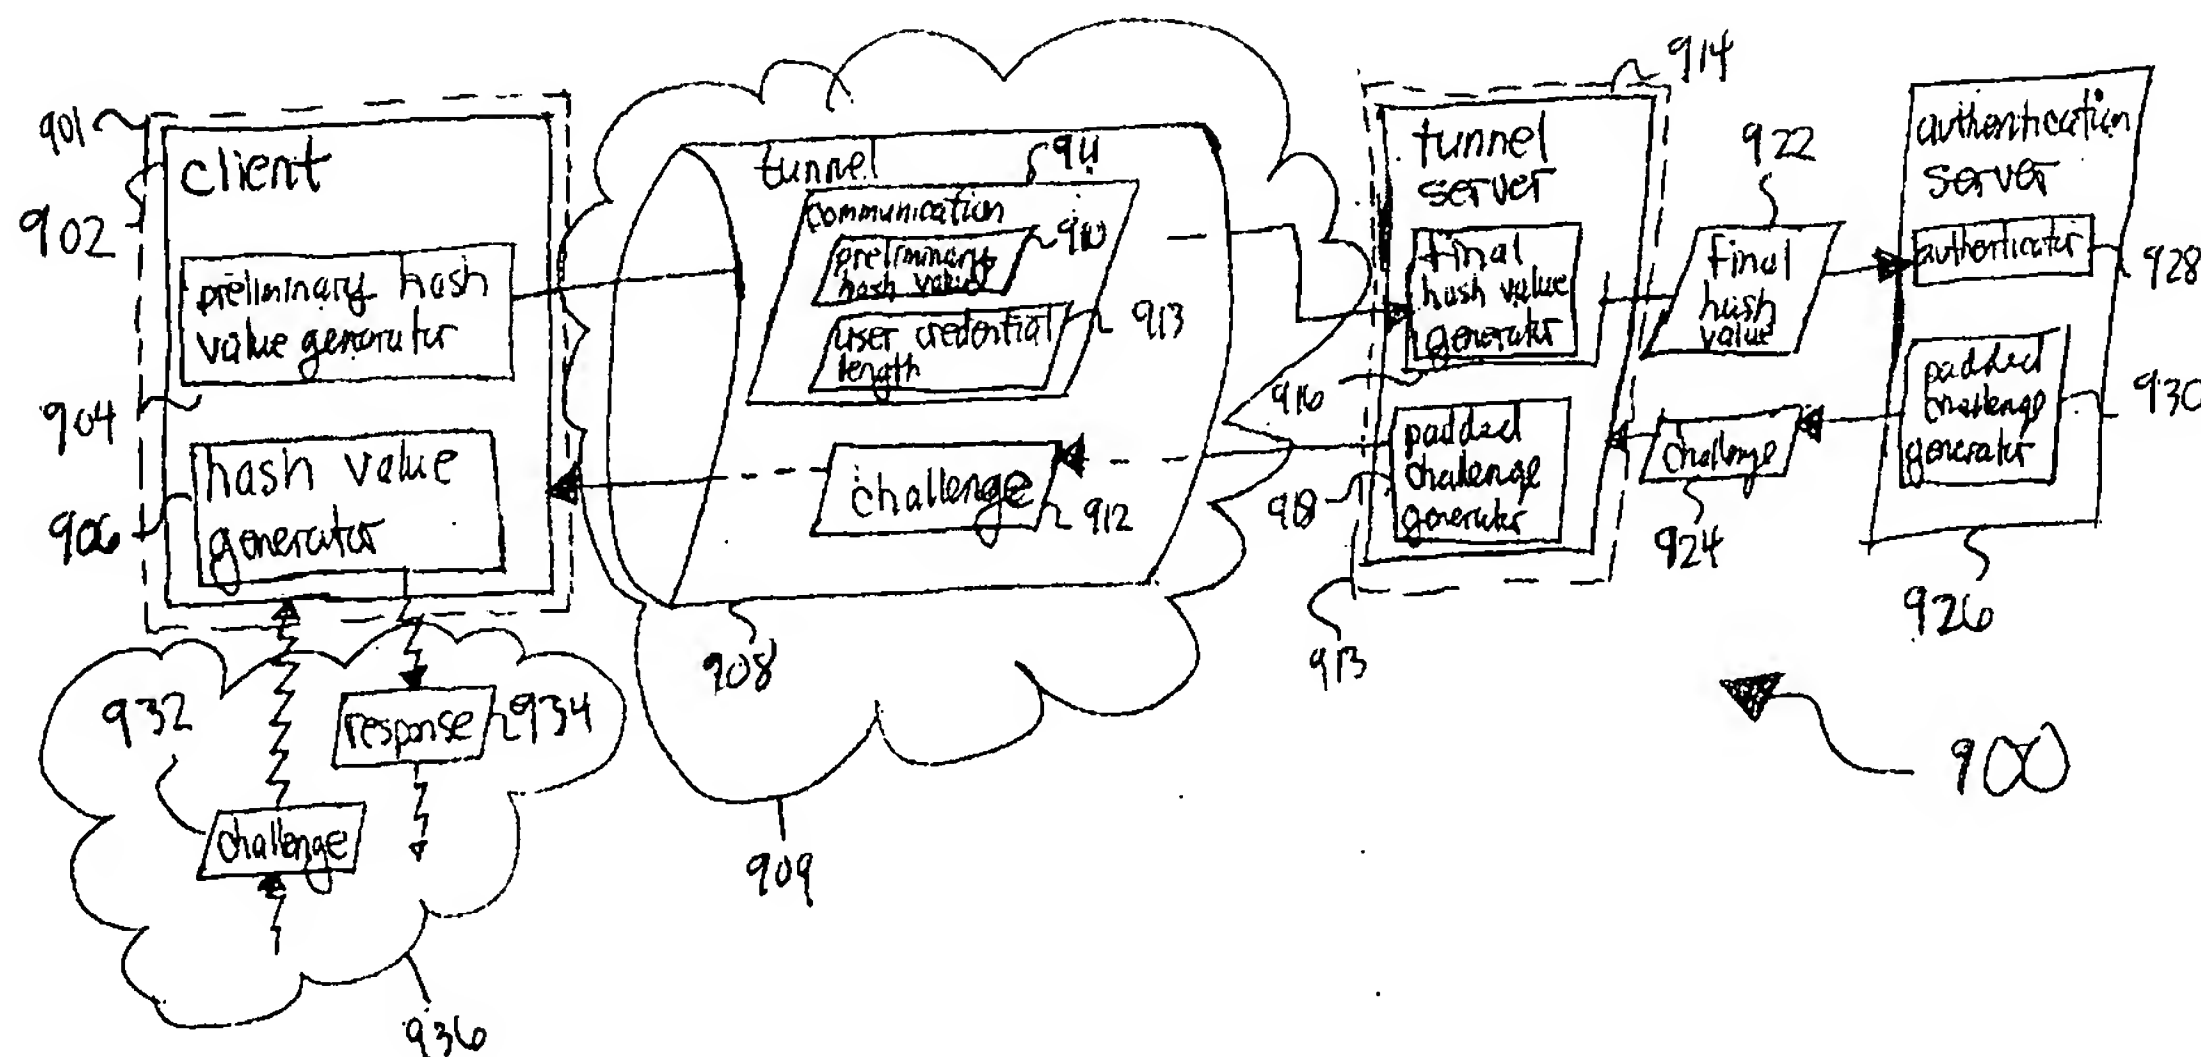 901
client
902
preliminary hash
value generator
904
hash value
generator
906
tunnel
911
communication
910
preliminary
hash value
user credential
length
913
challenge
912
908
909
914
tunnel
server
final
hash value
generator
916
padded
challenge
generator
918
913
922
final
hash
value
challenge
924
authentication
server
authenticator
928
padded
challenge
generator
930
926
900
932
response
934
challenge
936